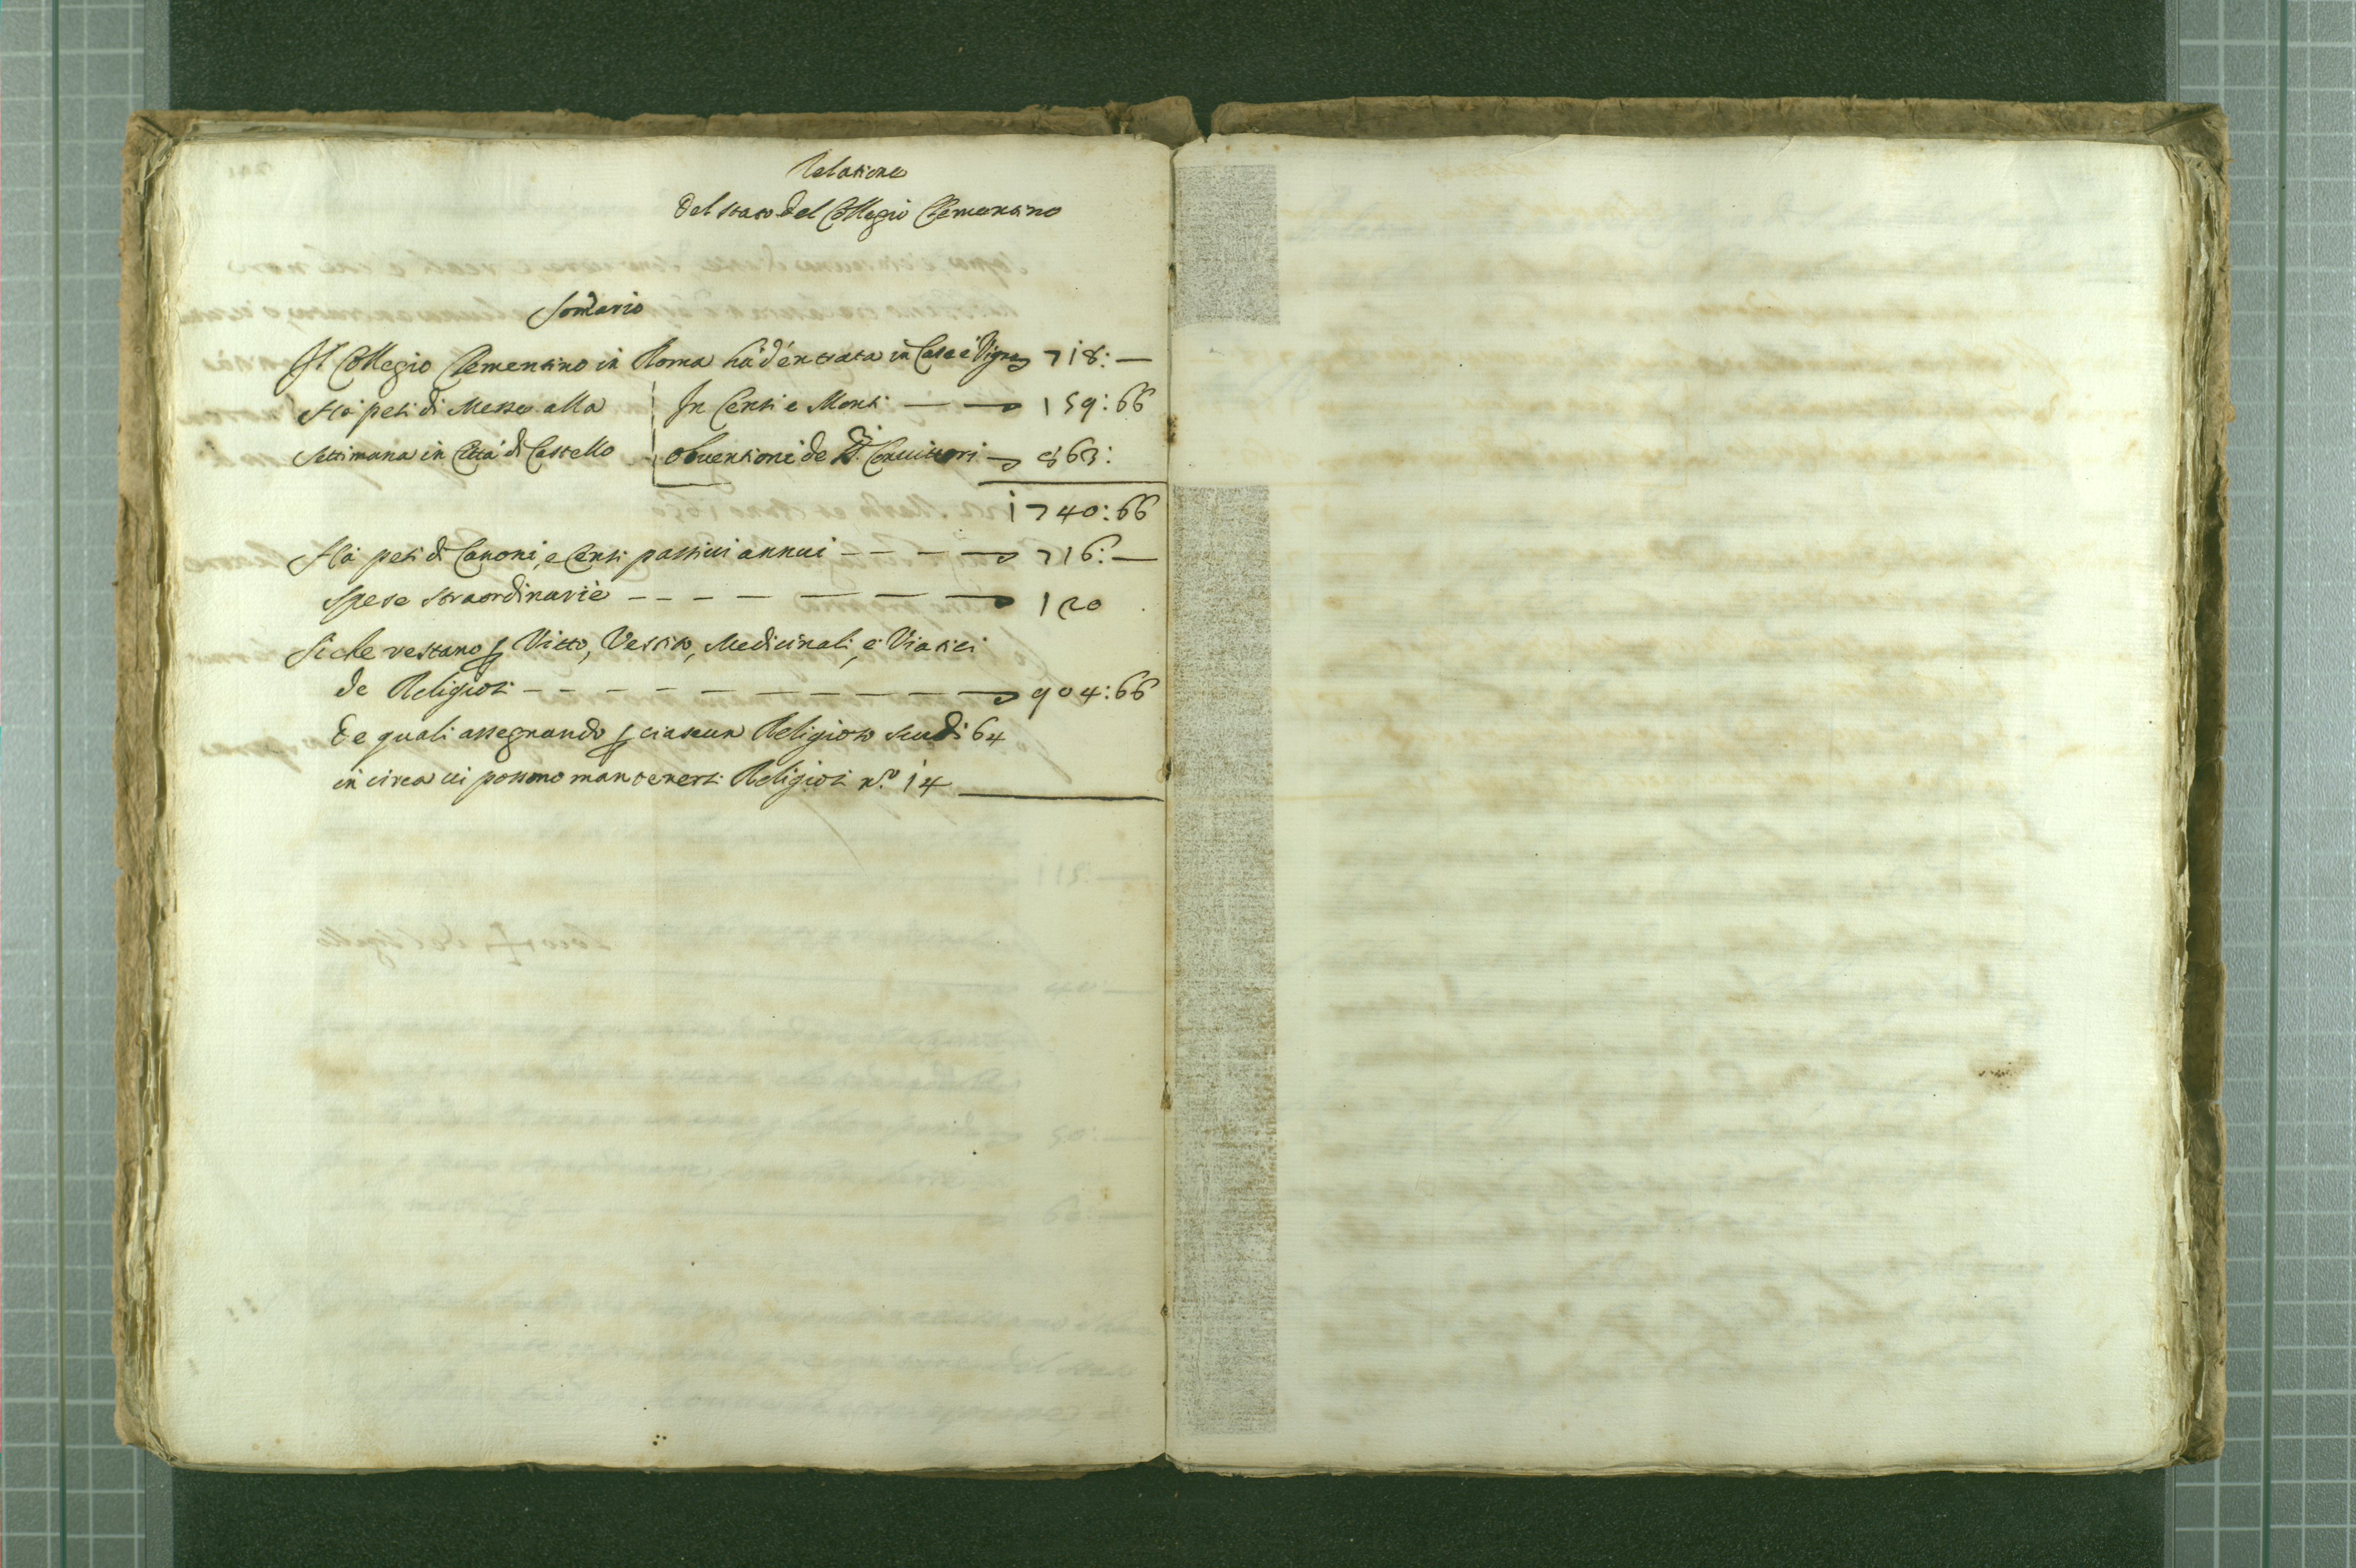 Relatione
del stato del Collegio Clementino
Somario
Il Collegio Clementino in Roma hà d'entrata in Case e Vigne 718: —
Hà pesi di Messe alla | In Censi e Monti — — 159:66
settimana in Città di Castello | Obventioni de SS.ri Convittori — 863:
1740:66
Hà pesi di Canoni, e Censi passivi annui - - - — 716: —
Spese straordinarie - - - — — — — — 120
Si che restano p Vitto, Vestito, Medicinali, e Viatici
de Religiosi - - - - — — — — — — 904:66
de quali assegnando p ciascun Religioso scudi 64
in circa vi possono mantenersi Religiosi n.º 14